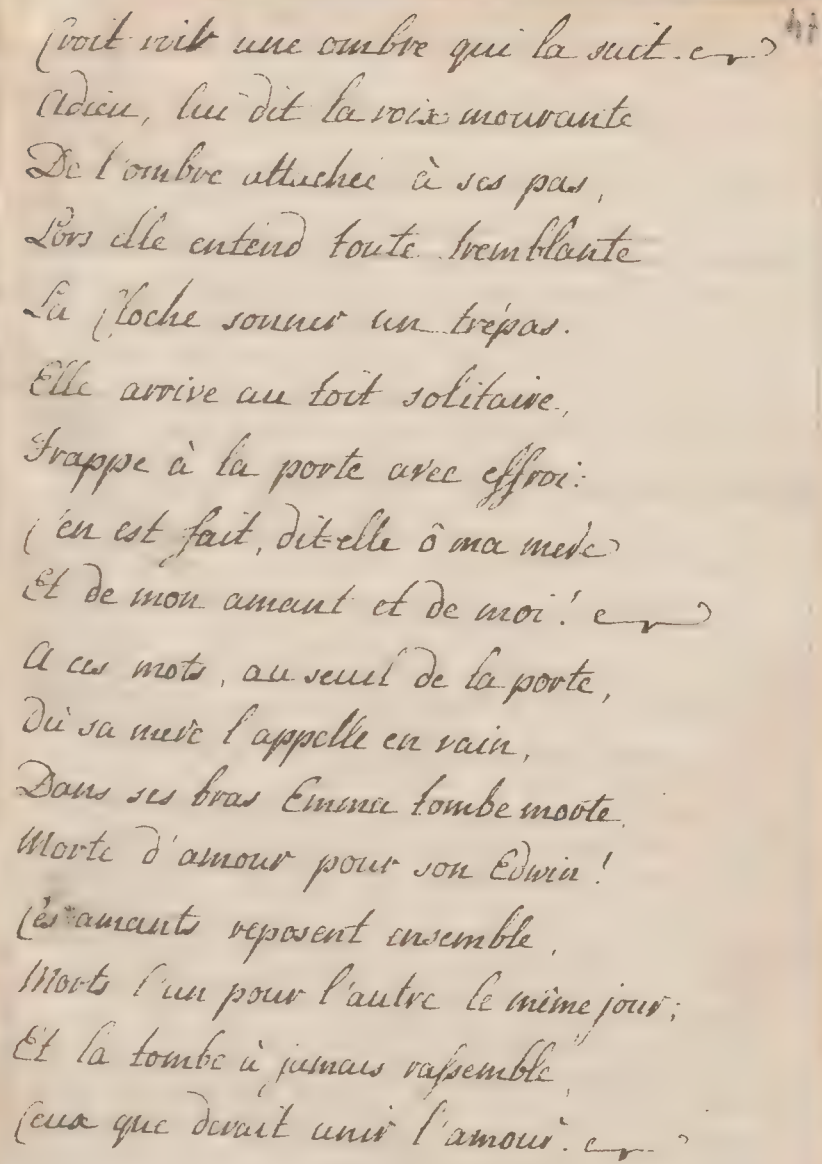 Croit voir une ombre qui la suit.
Adieu, lui dit la voix mourante
De l'ombre attachée à ses pas,
Lors elle entend toute tremblante
La Cloche sonner un trépas.
Elle arrive au toit solitaire,
Frappe à la porte avec effroi:
C'en est fait, dit-elle ô ma mere
Et de mon amant et de moi!
A ces mots, au seuil de la porte,
Où sa mere l'appelle en vain,
Dans ses bras Emma tombe morte
Morte d'amour pour son Edwin!
Ces amants reposent ensemble,
Morts l'un pour l'autre le même jour;
Et la tombe à jamais rassemble
Ceux que devait unir l'amour.